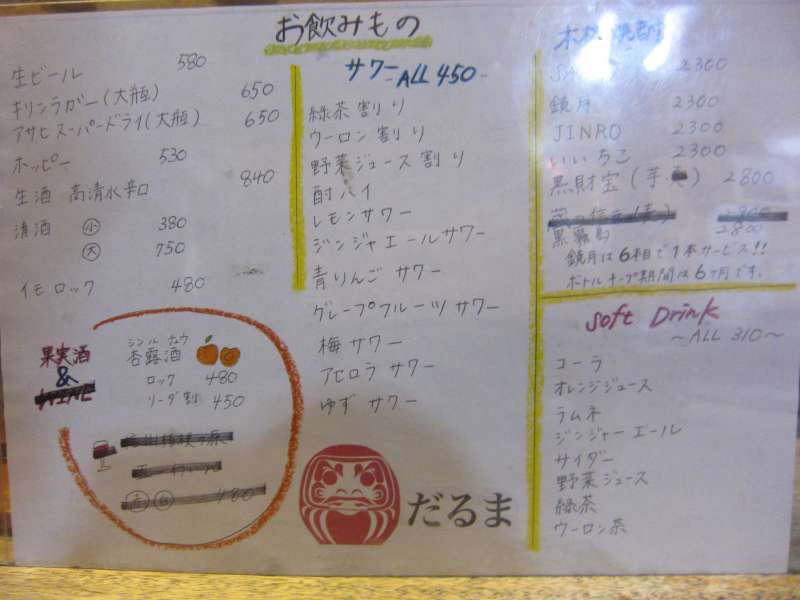 お飲みもの
生ビール 580
キリンラガー(大瓶) 650
アサヒスーパードライ(大瓶) 650
ホッピー 530
生酒 高清水辛口 840
清酒 小 380
大 750
イモロック 480
果実酒
&
シンルチュウ
杏露酒
ロック 480
ソーダ割 450
480
サワー ALL 450
緑茶割り
ウーロン割り
野菜ジュース割り
酎ハイ
レモンサワー
ジンジャエールサワー
青りんごサワー
グレープフルーツサワー
梅サワー
アセロラサワー
ゆずサワー
だるま
2300
鏡月 2300
JINRO 2300
いいちこ 2300
黒財宝(芋) 2800
黒霧島 2800
鏡月は6本目で1本サービス!!
ボトルキープ期間は6ヶ月です。
Soft Drink
~ALL 310~
コーラ
オレンジジュース
ラムネ
ジンジャーエール
サイダー
野菜ジュース
緑茶
ウーロン茶